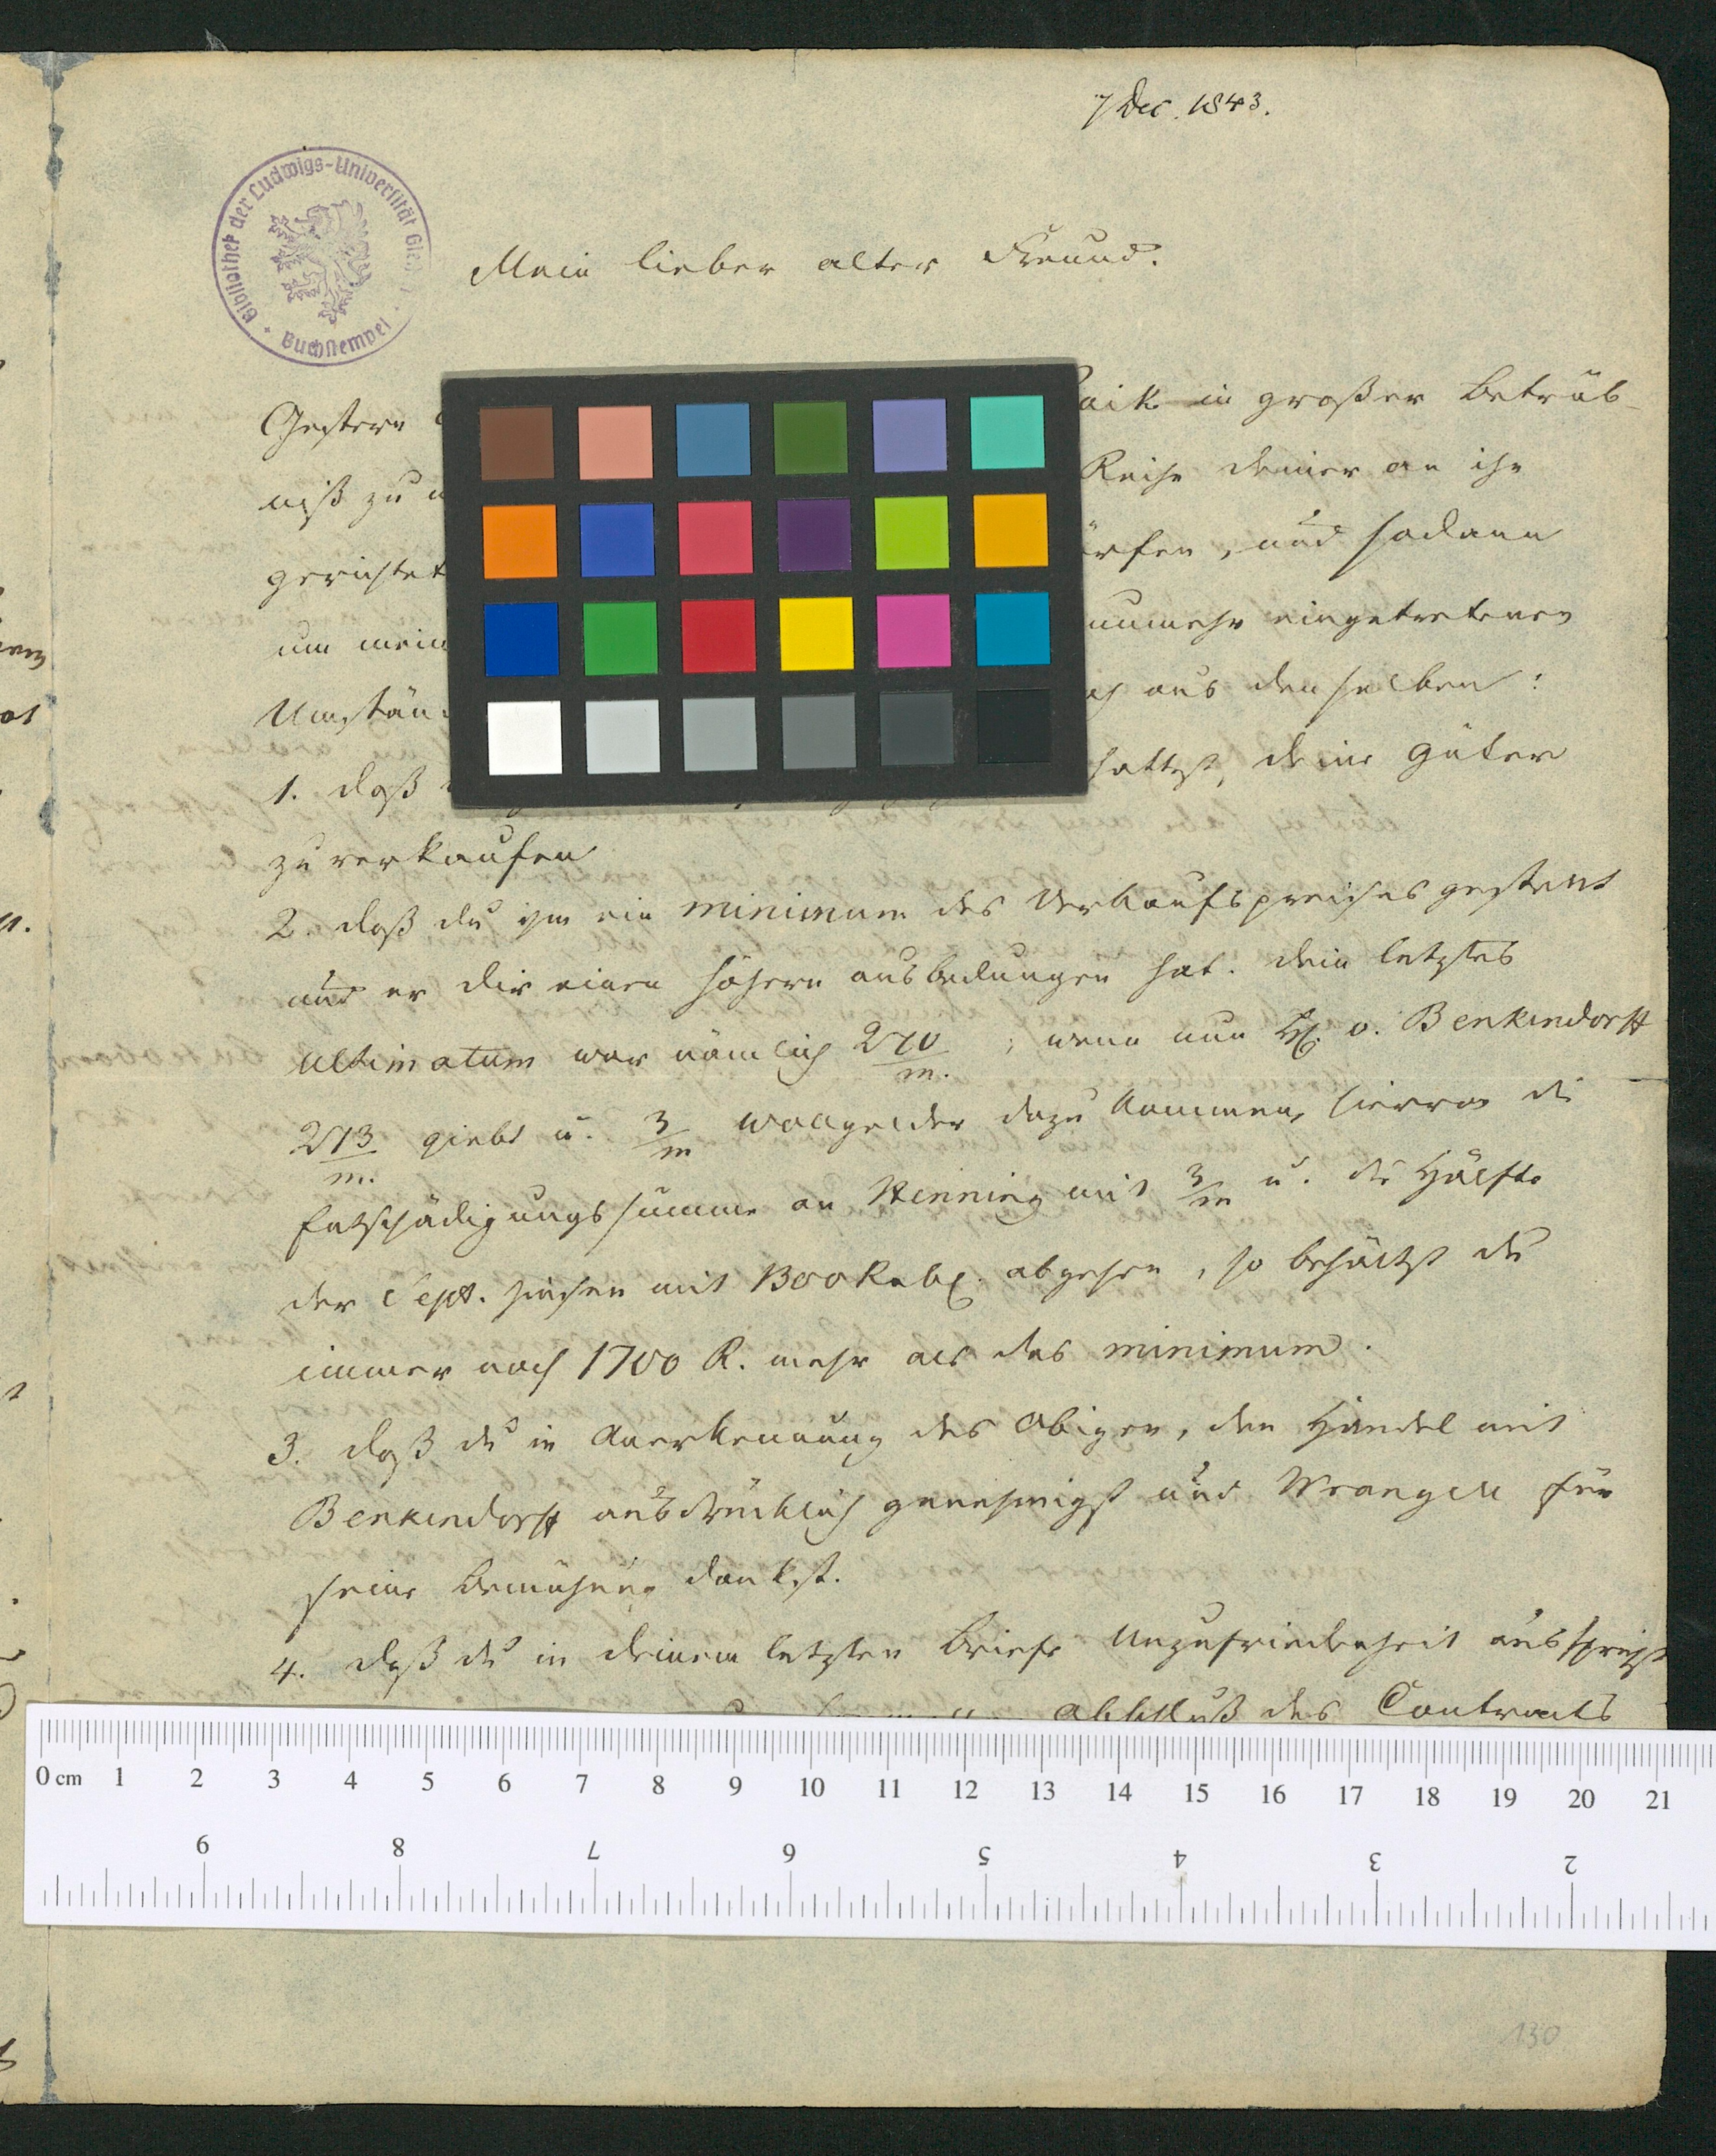 7 Dec. 1843.
Bibliothek der Ludwigs-Universität Gie
Buchstempel
Mein lieber alter Freund.
Gestern aik in großer Betrüb-
niß zu Reihe deiner an ihn
gerichtet ürfen, und sodann
um mein nunmehr eingetretenen
Umstän ich aus denselben:
1. daß hattest, deine Güter
zu verkaufen
2. daß du ihm ein minimum des Verkaufspreises gestellt
und er dir einen höhern ausbedungen hat. dein letztes
ultimatum war nämlich 270/m.; wenn nun H. v. Benkendorff
273/m. giebt u. 3/m dazu kommen, hiervon die
Entschädigungssumme an Henning mit 3/m u. die Hälfte
der Sept. Zinsen mit 1300 Rubl. abgehen, so behältst du
immer noch 1700 R. mehr als das minimum.
3. daß du in Anerkennung des Obigen, den Handel mit
Benkendorff ausdrücklich genehmigst und Wrangell für
seine Bemühung dankst.
4. daß du in deinem letzten Briefe Unzufriedenheit aussprichst
Abschluß des Contracts
0 cm 1 2 3 4 5 6 7 8 9 10 11 12 13 14 15 16 17 18 19 20 21
9 8 7 6 5 4 3 2
130